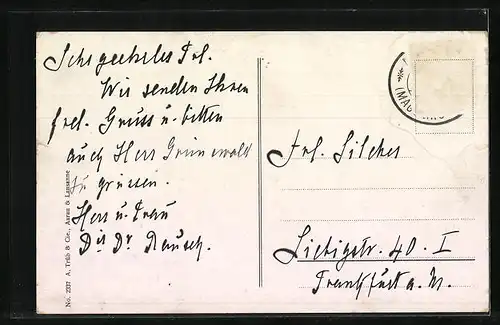 Sehr geehrtes Frl.
Wir senden Ihnen
frdl. Gruss u. bitten
auch Herr Grünewald
zu grüssen.
Herr u. Frau
Dr. Rausch.
Frl. Silcher
Liebigstr. 40. I
Frankfurt a. M.
No. 2337 A. Trüb & Cie., Aarau & Lausanne
(MAG